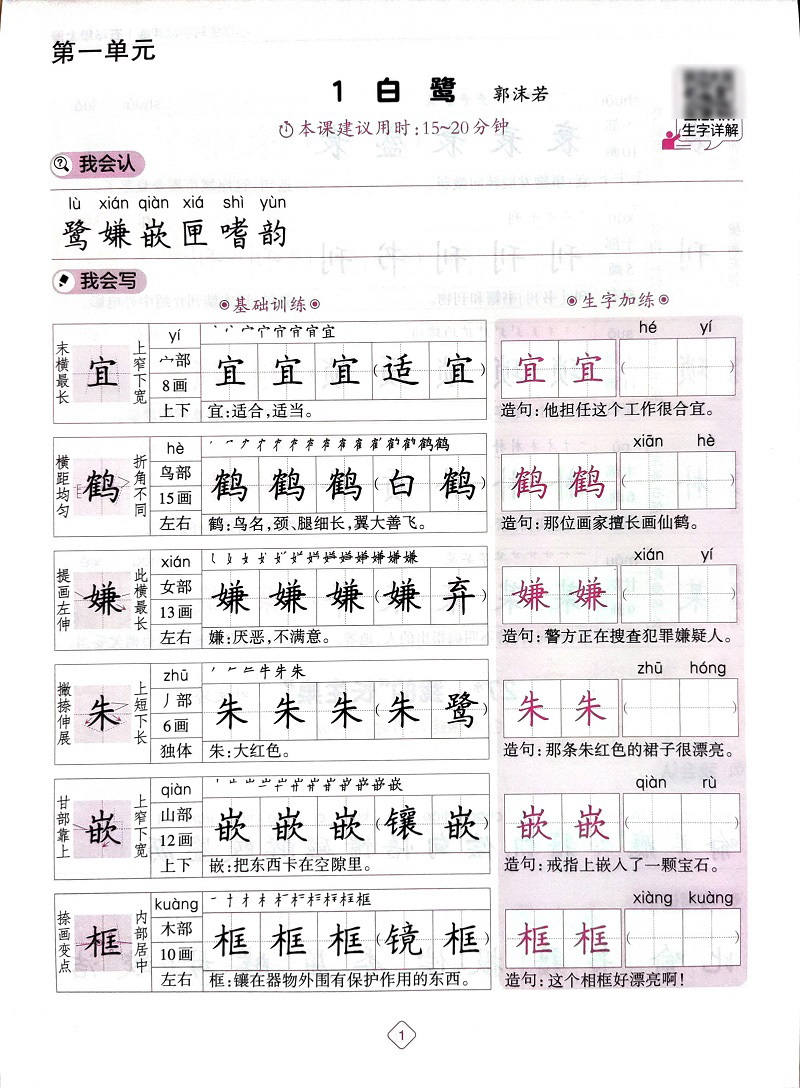 第一单元
1 白 鹭 郭沫若
本课建议用时:15~20分钟
生字详解
我会认
lù xián qiàn xiá shì yùn
鹭 嫌 嵌 匣 嗜 韵
我会写
基础训练
生字加练
末横最长 宜 上窄下宽
yí
宀部
8画
上下
宜 宜 宜 (适 宜)
宜:适合,适当。
hé yí
宜 宜 ( )
造句:他担任这个工作很合宜。
横距均匀 鹤 折角不同
hè
鸟部
15画
左右
鹤 鹤 鹤 (白 鹤)
鹤:鸟名,颈、腿细长,翼大善飞。
xiān hè
鹤 鹤 ( )
造句:那位画家擅长画仙鹤。
提画左伸 嫌 此横最长
xián
女部
13画
左右
嫌 嫌 嫌 (嫌 弃)
嫌:厌恶,不满意。
xián yí
嫌 嫌 ( )
造句:警方正在搜查犯罪嫌疑人。
撇捺伸展 朱 上短下长
zhū
丿部
6画
独体
朱 朱 朱 (朱 鹭)
朱:大红色。
zhū hóng
朱 朱 ( )
造句:那条朱红色的裙子很漂亮。
甘部靠上 嵌 上窄下宽
qiàn
山部
12画
上下
嵌 嵌 嵌 (镶 嵌)
嵌:把东西卡在空隙里。
qiàn rù
嵌 嵌 ( )
造句:戒指上嵌入了一颗宝石。
捺画变点 框 内部居中
kuàng
木部
10画
左右
框 框 框 (镜 框)
框:镶在器物外围有保护作用的东西。
xiàng kuàng
框 框 ( )
造句:这个相框好漂亮啊!
1